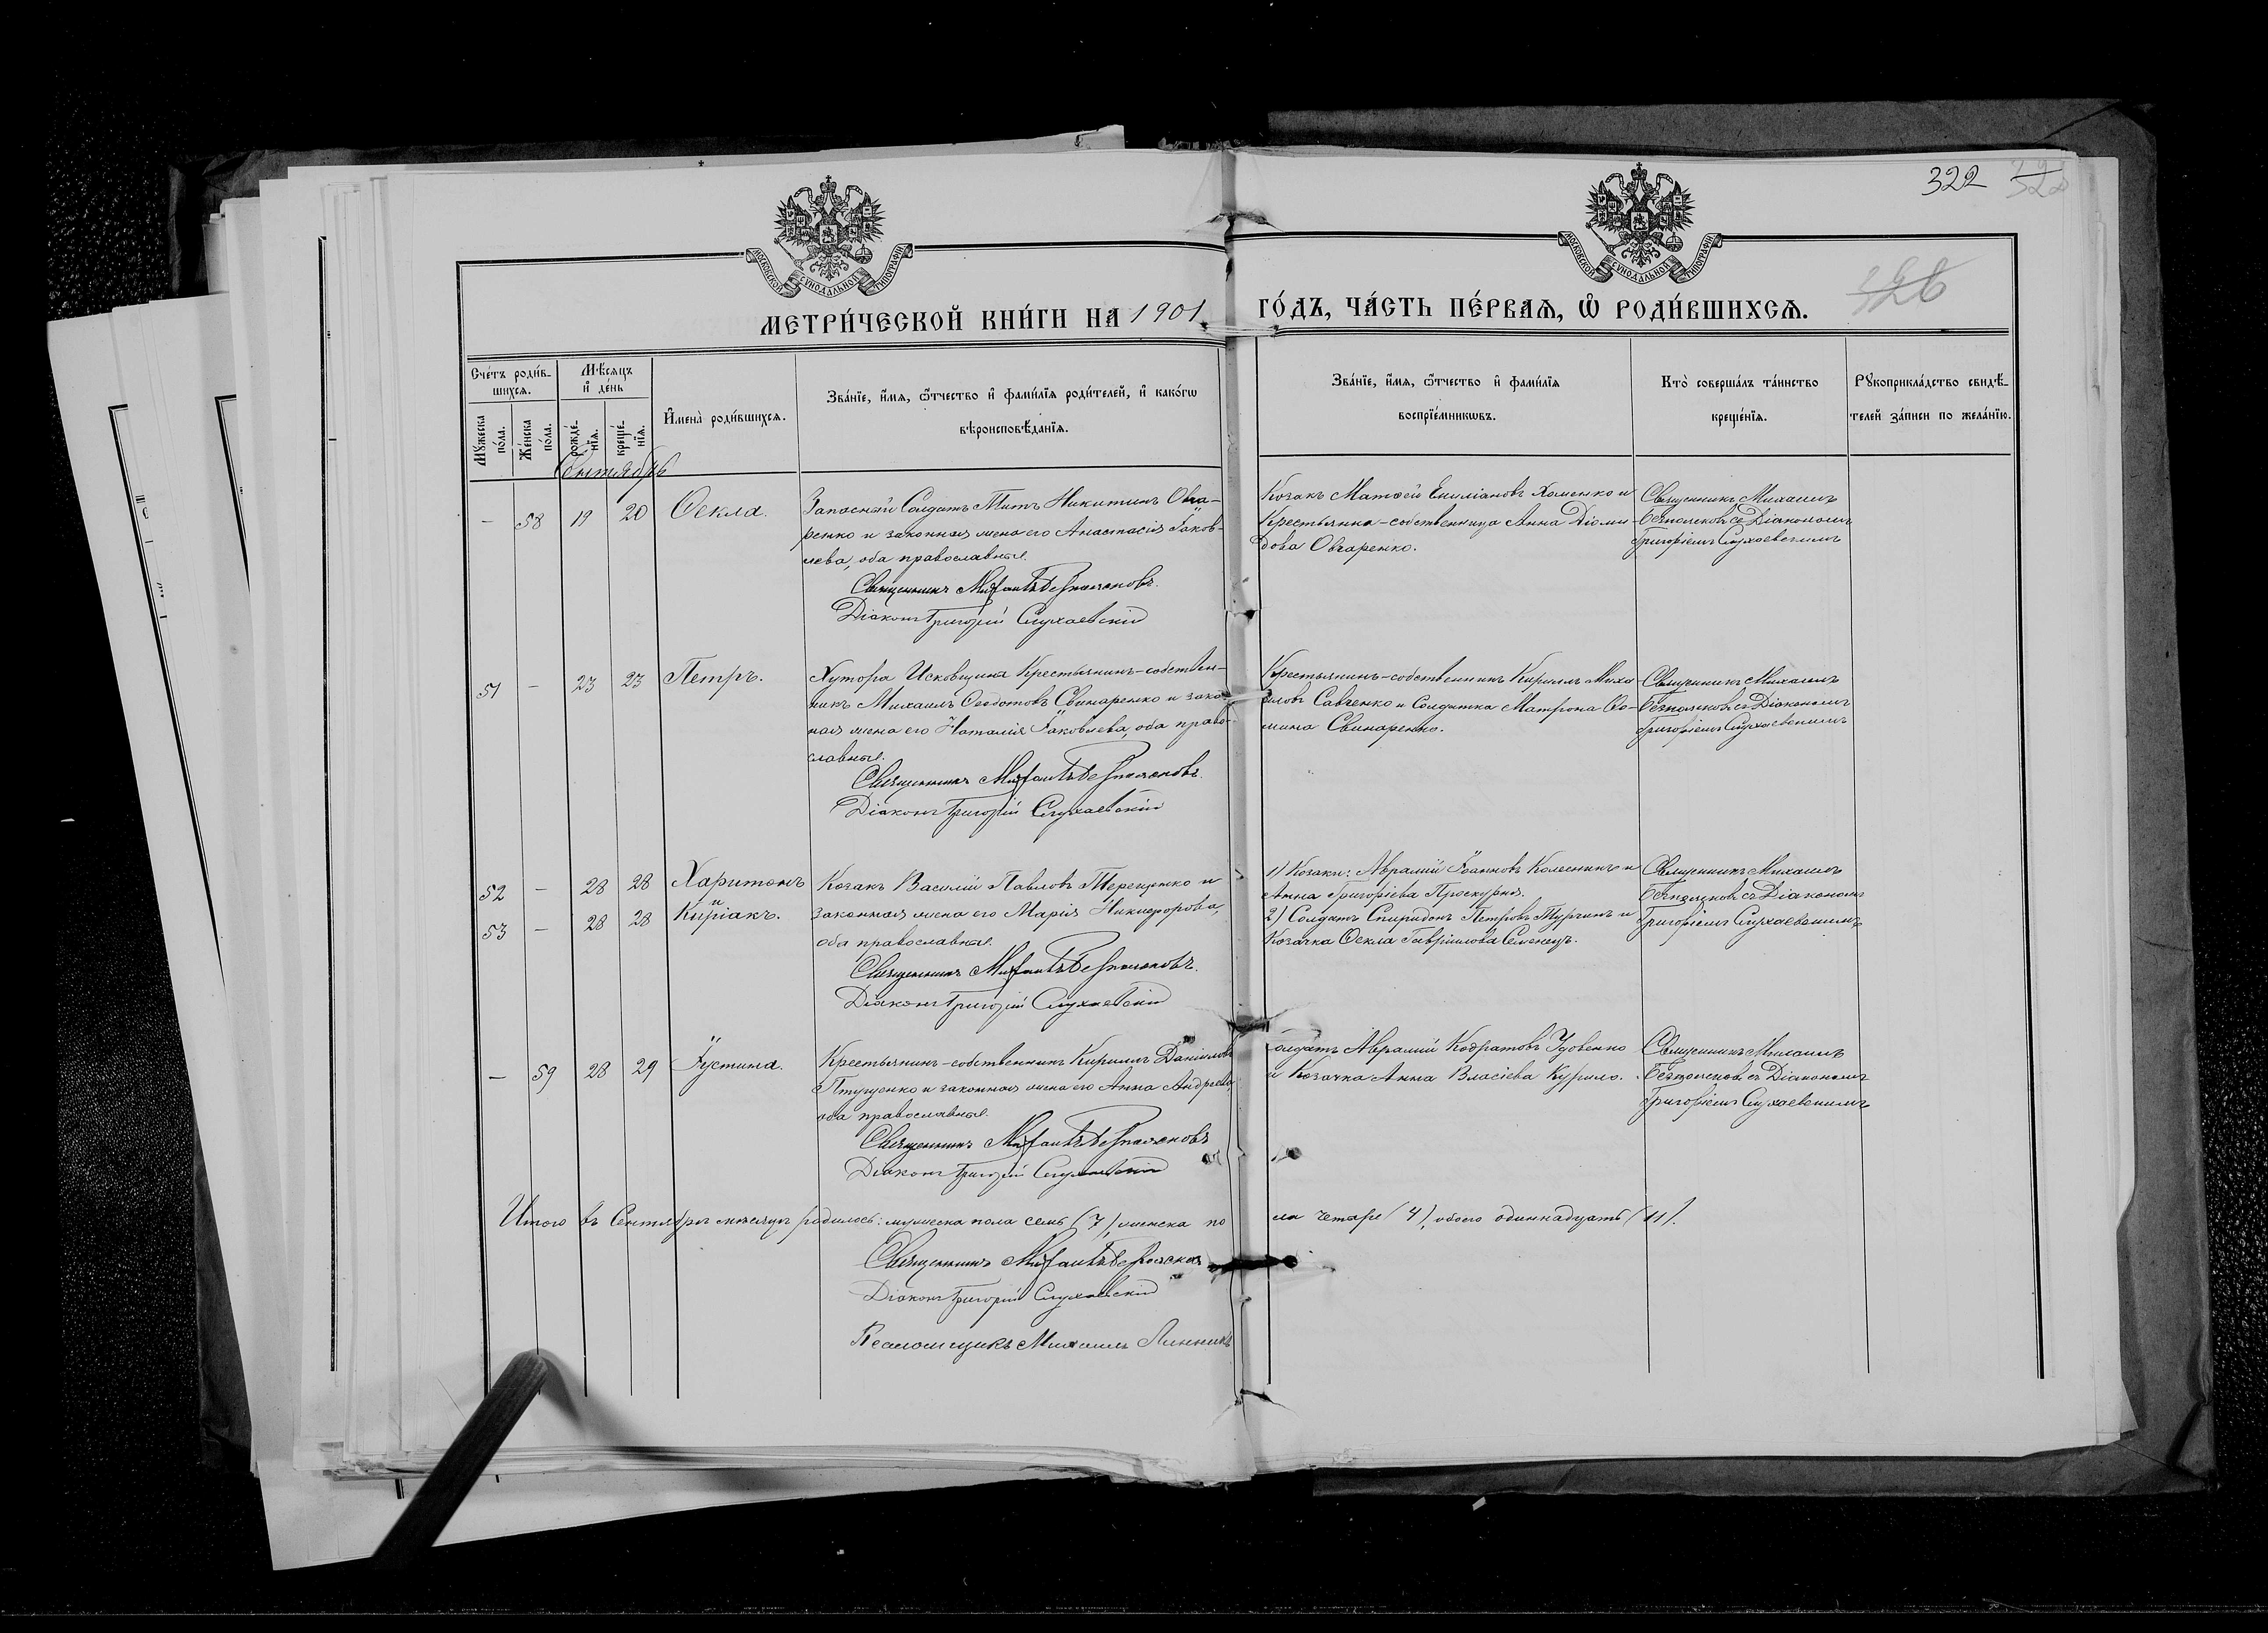 322
326
МОСКОВСКОЙ СѴНОДАЛЬНОЙ ТИПОГРАФІИ
МОСКОВСКОЙ СѴНОДАЛЬНОЙ ТИПОГРАФІИ
МЕТРИ́ЧЕСКОЙ КНИ́ГИ НА 1901 ГО́ДЪ, ЧА́СТЬ ПЕ́РВАѦ, Ѽ РОДИ́ВШИХСѦ.
Сче́тъ роди́в-
шихсѧ.
Мѣ́сѧцъ
и҆ де́нь
Мꙋ́жеска
по́ла.
Же́нска
по́ла.
рожде́-
нїѧ.
креще́-
нїѧ.
И҆мена̀ роди́вшихсѧ.
Зва́нїе, и҆́мѧ, ѻ҆́тчество и҆ фами́лїѧ роди́телей, и҆ како́гѡ
вѣроисповѣ́данїѧ.
Зва́нїе, и҆́мѧ, ѻ҆́тчество и҆ фами́лїѧ
воспрїе́мникѡвъ.
Кто̀ соверша́лъ та́инство
креще́нїѧ.
Рꙋкоприкла́дство свидѣ́-
телей за́писи по жела́нїю.
Сентябрь
— 58 19 20 Ѳекла.
Запасный Солдатъ Титъ Никитинъ Овча-
ренко и законная жена его Анастасія Іаков-
лева, оба православные.
Священникъ Михаилъ Безпалчевъ
Діаконъ Григорій Слухаевскій
Козакъ Матѳей Емиліановъ Хоменко и
Крестьянка-собственница Анна Діоми-
дова Овчаренко.
Священникъ Михаилъ
съ Діакономъ
Григоріемъ Слухаевскимъ
51 — 23 23 Петръ.
Хутора Исковщина Крестьянинъ-собствен-
никъ Михаилъ Ѳеодотовъ Свинаренко и закон-
ная жена его Наталія Іаковлева, оба право-
славные.
Священникъ Михаилъ
Діаконъ Григорій Слухаевскій
Крестьянинъ-собственникъ Кириллъ Миха-
иловъ Савченко и Солдатка Матрона Ѳо-
мина Свинаренко.
Священникъ Михаилъ
съ Діакономъ
Григоріемъ Слухаевскимъ
52 — 28 28 Харитонъ
53 — 28 28 и Киріакъ.
Козакъ Василій Павловъ Терещенко и
законная жена его Марія Никифорова,
оба православные.
Священникъ Михаилъ
Діаконъ Григорій Слухаевскій
1) Козаки: Аврамій Іоанновъ Колесникъ и
Анна Григоріева Проскурня.
2) Солдатъ Спиридонъ Петровъ Турчинъ и
Козачка Ѳекла Гавріилова Семенецъ.
Священникъ Михаилъ
съ Діакономъ
Григоріемъ Слухаевскимъ
— 59 28 29 Іустина.
Крестьянинъ-собственникъ Кириллъ Даніиловъ
Птущенко и законная жена его Анна Андреева,
оба православные.
Священникъ Михаилъ
Діаконъ Григорій Слухаевскій
Солдатъ Аврамій Кодратовъ Удовенко
и Козачка Анна Власіева Курило.
Священникъ Михаилъ
съ Діакономъ
Григоріемъ Слухаевскимъ
Итого въ Сентябрѣ мѣсяцѣ родилось: мужеска пола семь (7), женска по ла четыре (4), обоего одиннадцать (11).
Священникъ Михаилъ
Діаконъ Григорій Слухаевскій
Псаломщикъ Михаилъ Линникъ